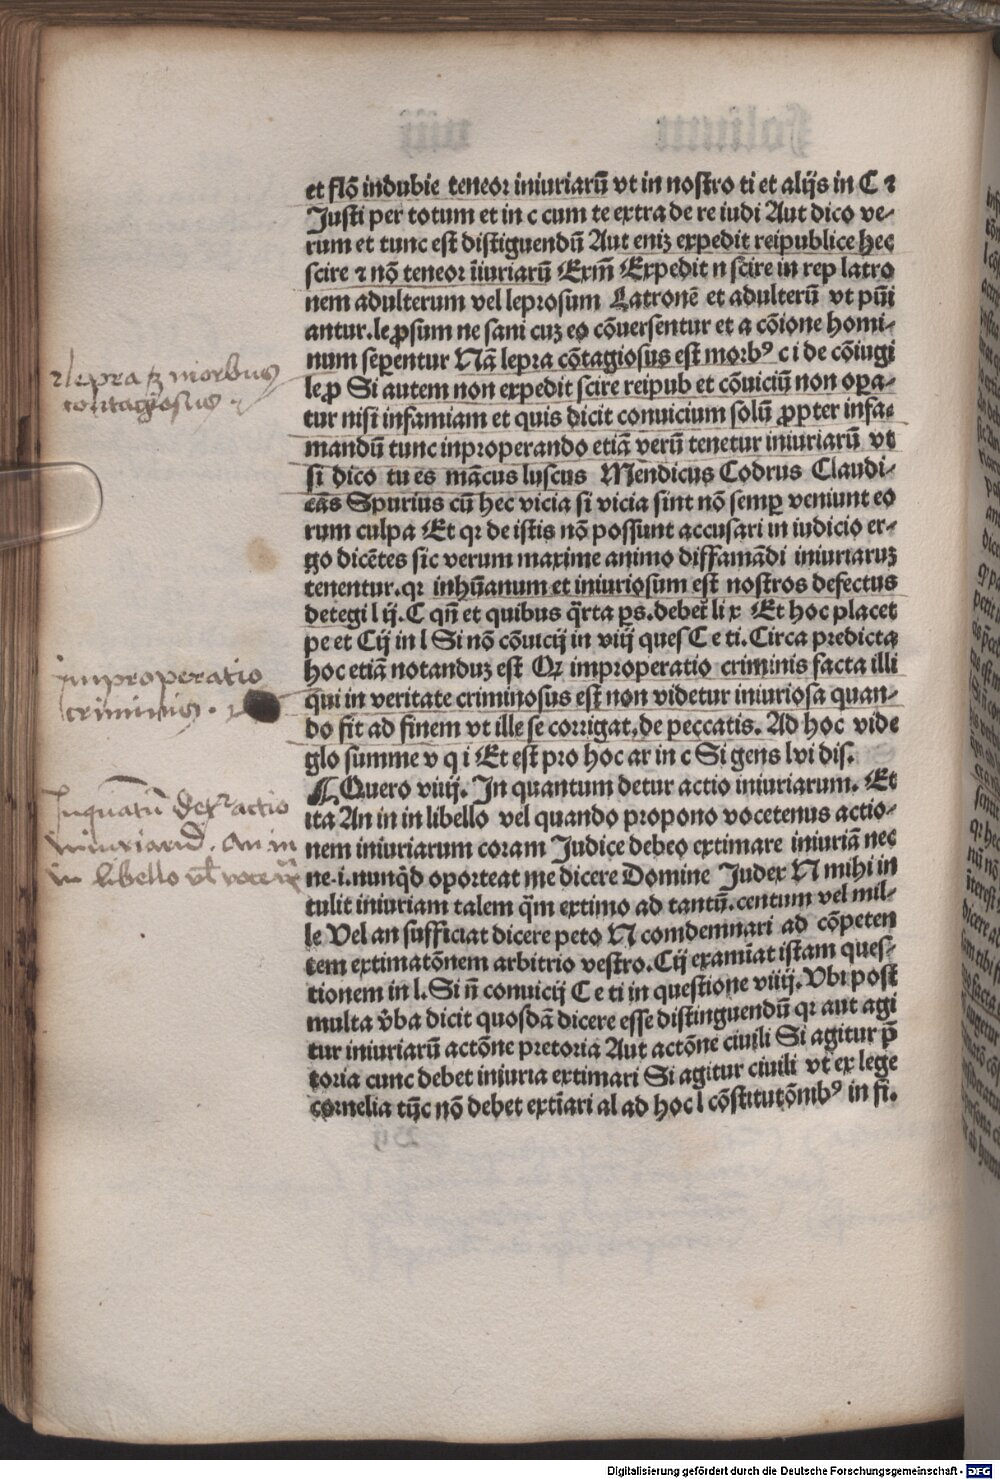 et flō indubie teneor iniuriarū vt in nostro ti et alijs in C ⁊
Justi per totum et in c cum te extra de re iudi Aut dico ve⸗
rum et tunc est distiguendū Aut eniꝫ expedit reipublice hec
scire ⁊ nō teneor īiuriarū Exm̄ Expedit n scire in rep latro
nem adulterum vel leprosum Latronē et adulterū vt pūi
antur. le ꝓsum ne sani cuꝫ eo cōuersentur et a cōione homi⸗
num seꝑentur Nā lepra cōtagiosus est morbꝰ c i de cōiugi
le ꝓ Si autem non expedit scire reipub et cōuiciū non oꝑa⸗
tur nisi infamiam et quis dicit conuicium solū ꝓpter infa⸗
mandū tunc inproperando etiā verū tenetur iniuriarū vt
si dico tu es mācus luscus Mendicus Codrus Claudi⸗
cās Spurius cū hec vicia si vicia sint nō semꝑ veniunt eo
rum culpa Et qꝛ de istis nō possunt accusari in iudicio er⸗
go dicētes sic verum maxime animo diffamādi iniuriaruꝫ
tenentur. qꝛ inhūanum et iniuriosum est nostros defectus
detegi l ij. C qn̄ et quibus q̄rta ꝑs. debet̄ li x Et hoc placet
pe et Cij in l Si nō cōuicij in viij ques C e ti. Circa predicta
hoc etiā notanduꝫ est Qꝛ improperatio criminis facta illi
qui in veritate criminosus est non videtur iniuriosa quan⸗
do fit ad finem vt ille se corrigat, de peccatis. Ad hoc vide
glo summe v q i Et est pro hoc ar in c Si gens lvi dis.
Quero viiij. In quantum detur actio iniuriarum. Et
ita An in in libello vel quando propono vocetenus actio⸗
nem iniuriarum coram Judice debeo extimare iniuriā nec
ne .i. nunq̄d oporteat me dicere Domine Judex N mihi in
tulit iniuriam talem q̄m extimo ad tantū. centum vel mil⸗
le Vel an sufficiat dicere peto N comdemnari ad cōpeten
tem extimatōnem arbitrio vestro. Cij examīat istam ques⸗
tionem in l. Si n̄ conuicij C e ti in questione viiij. Vbi post
multa v̄ba dicit quosdā dicere esse distinguendū qꝛ aut agi
tur iniuriarū actōne pretoria Aut actōne ciuili Si agitur p̄
toria cunc debet iniuria extimari Si agitur ciuili vt ex lege
cornelia tūc nō debet extīari al ad hoc l cōstitutōmbꝰ in fi.
lepra ꝫ morbus
contagiosus
improperatio
criminis.
Inquātū det~ actio
iniuriarū. An in
in libello vl̄
Digitalisierung gefördert durch die Deutsche Forschungsgemeinschaft - DFG